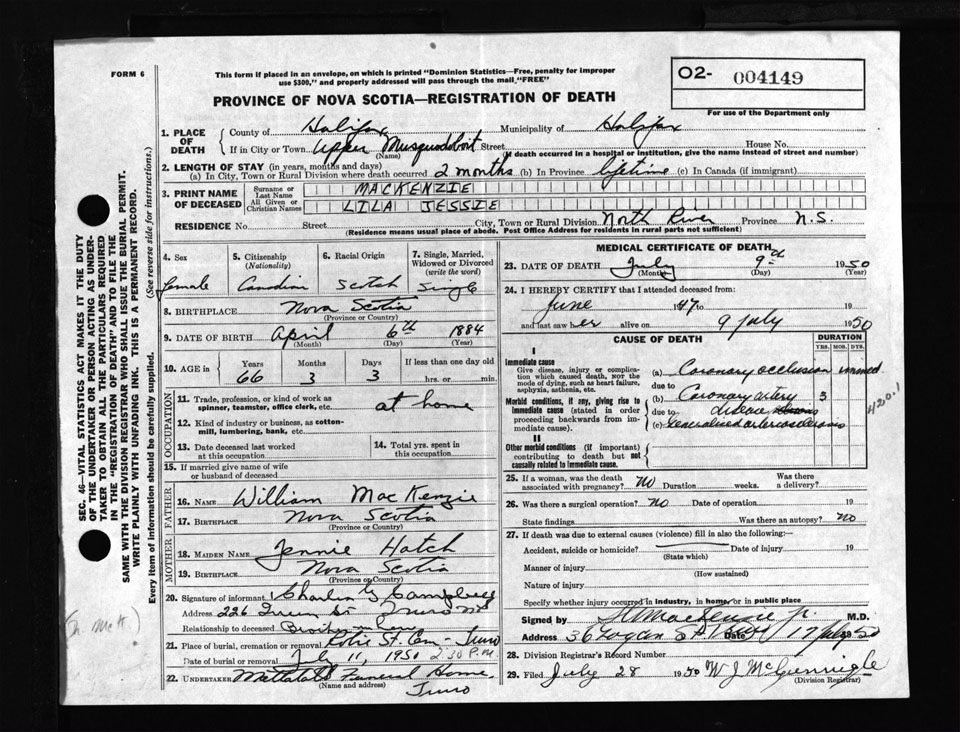 FORM 6
This form if placed in an envelope, on which is printed "Dominion Statistics—Free, penalty for improper
use $300," and properly addressed will pass through the mail "FREE"
PROVINCE OF NOVA SCOTIA—REGISTRATION OF DEATH
O2- 004149
For use of the Department only
1. PLACE OF DEATH
County of Halifax Municipality of Halifax
If in City or Town Upper Musquodoboit Street House No.
(Name) (If death occurred in a hospital or institution, give the name instead of street and number)
2. LENGTH OF STAY (in years, months and days)
(a) In City, Town or Rural Division where death occurred 2 months (b) In Province lifetime (c) In Canada (if immigrant)
3. PRINT NAME OF DECEASED
Surname or Last Name MACKENZIE
All Given or Christian Names LILA JESSIE
RESIDENCE No. Street City, Town or Rural Division North River Province N.S.
(Residence means usual place of abode. Post Office Address for residents in rural parts not sufficient)
4. Sex
female
5. Citizenship
(Nationality)
Canadian
6. Racial Origin
Scotch
7. Single, Married,
Widowed or Divorced
(write the word)
Single
8. BIRTHPLACE Nova Scotia
(Province or Country)
9. DATE OF BIRTH April 6th 1884
(Month) (Day) (Year)
10. AGE in Years Months Days If less than one day old
66 3 3 hrs. or min.
OCCUPATION
11. Trade, profession, or kind of work as
spinner, teamster, office clerk, etc. at home
12. Kind of industry or business, as cotton-
mill, lumbering, bank, etc.
13. Date deceased last worked
at this occupation
14. Total yrs. spent in
this occupation
15. If married give name of wife
or husband of deceased
FATHER
16. NAME William MacKenzie
17. BIRTHPLACE Nova Scotia
(Province or Country)
MOTHER
18. MAIDEN NAME Jennie Hatch
19. BIRTHPLACE Nova Scotia
(Province or Country)
20. Signature of informant Charles G Campbell
Address 226 Queen St Truro NS
Relationship to deceased Brother in law
21. Place of burial, cremation or removal Robie St. Cem - Truro
Date of burial or removal July 11, 1950 2:30 P.M.
22. UNDERTAKER Mattatall Funeral Home
(Name and address) Truro
MEDICAL CERTIFICATE OF DEATH
23. DATE OF DEATH July 9 1950
(Month) (Day) (Year)
24. I HEREBY CERTIFY that I attended deceased from:
June 1947 to 19
and last saw her alive on 9 July 1950
CAUSE OF DEATH
DURATION
YRS. MOS. DYS.
I
Immediate cause
Give disease, injury or complica-
tion which caused death, NOT the
mode of dying, such as heart failure,
asphyxia, asthenia, etc.
(a) Coronary occlusion immed
due to
Morbid conditions, if any, giving rise to
immediate cause (stated in order
proceeding backwards from im-
mediate cause).
(b) Coronary artery 3
due to disease
(c) Generalised arteriosclerosis
420.1
II
Other morbid conditions (if important)
contributing to death but not
causally related to immediate cause.
25. If a woman, was the death
associated with pregnancy? No Duration weeks. Was there
a delivery?
26. Was there a surgical operation? No Date of operation 19
State findings Was there an autopsy? No
27. If death was due to external causes (violence) fill in also the following:—
Accident, suicide or homicide? Date of injury 19
(State which)
Manner of injury
(How sustained)
Nature of injury
Specify whether injury occurred in industry, in home, or in public place
Signed by MacKenzie jr. M.D.
Address 36 Logan St Truro Date 17 July 1950
28. Division Registrar's Record Number
29. Filed July 28 1950 W J McGunnigle
(Division Registrar)
SEC. 46—VITAL STATISTICS ACT MAKES IT THE DUTY
OF THE UNDERTAKER OR PERSON ACTING AS UNDER-
TAKER TO OBTAIN ALL THE PARTICULARS REQUIRED
IN THE "REGISTRATION OF DEATH" AND TO FILE THE
SAME WITH THE DIVISION REGISTRAR WHO SHALL ISSUE THE BURIAL PERMIT.
WRITE PLAINLY WITH UNFADING INK. THIS IS A PERMANENT RECORD.
Every item of information should be carefully supplied. (See reverse side for instructions.)